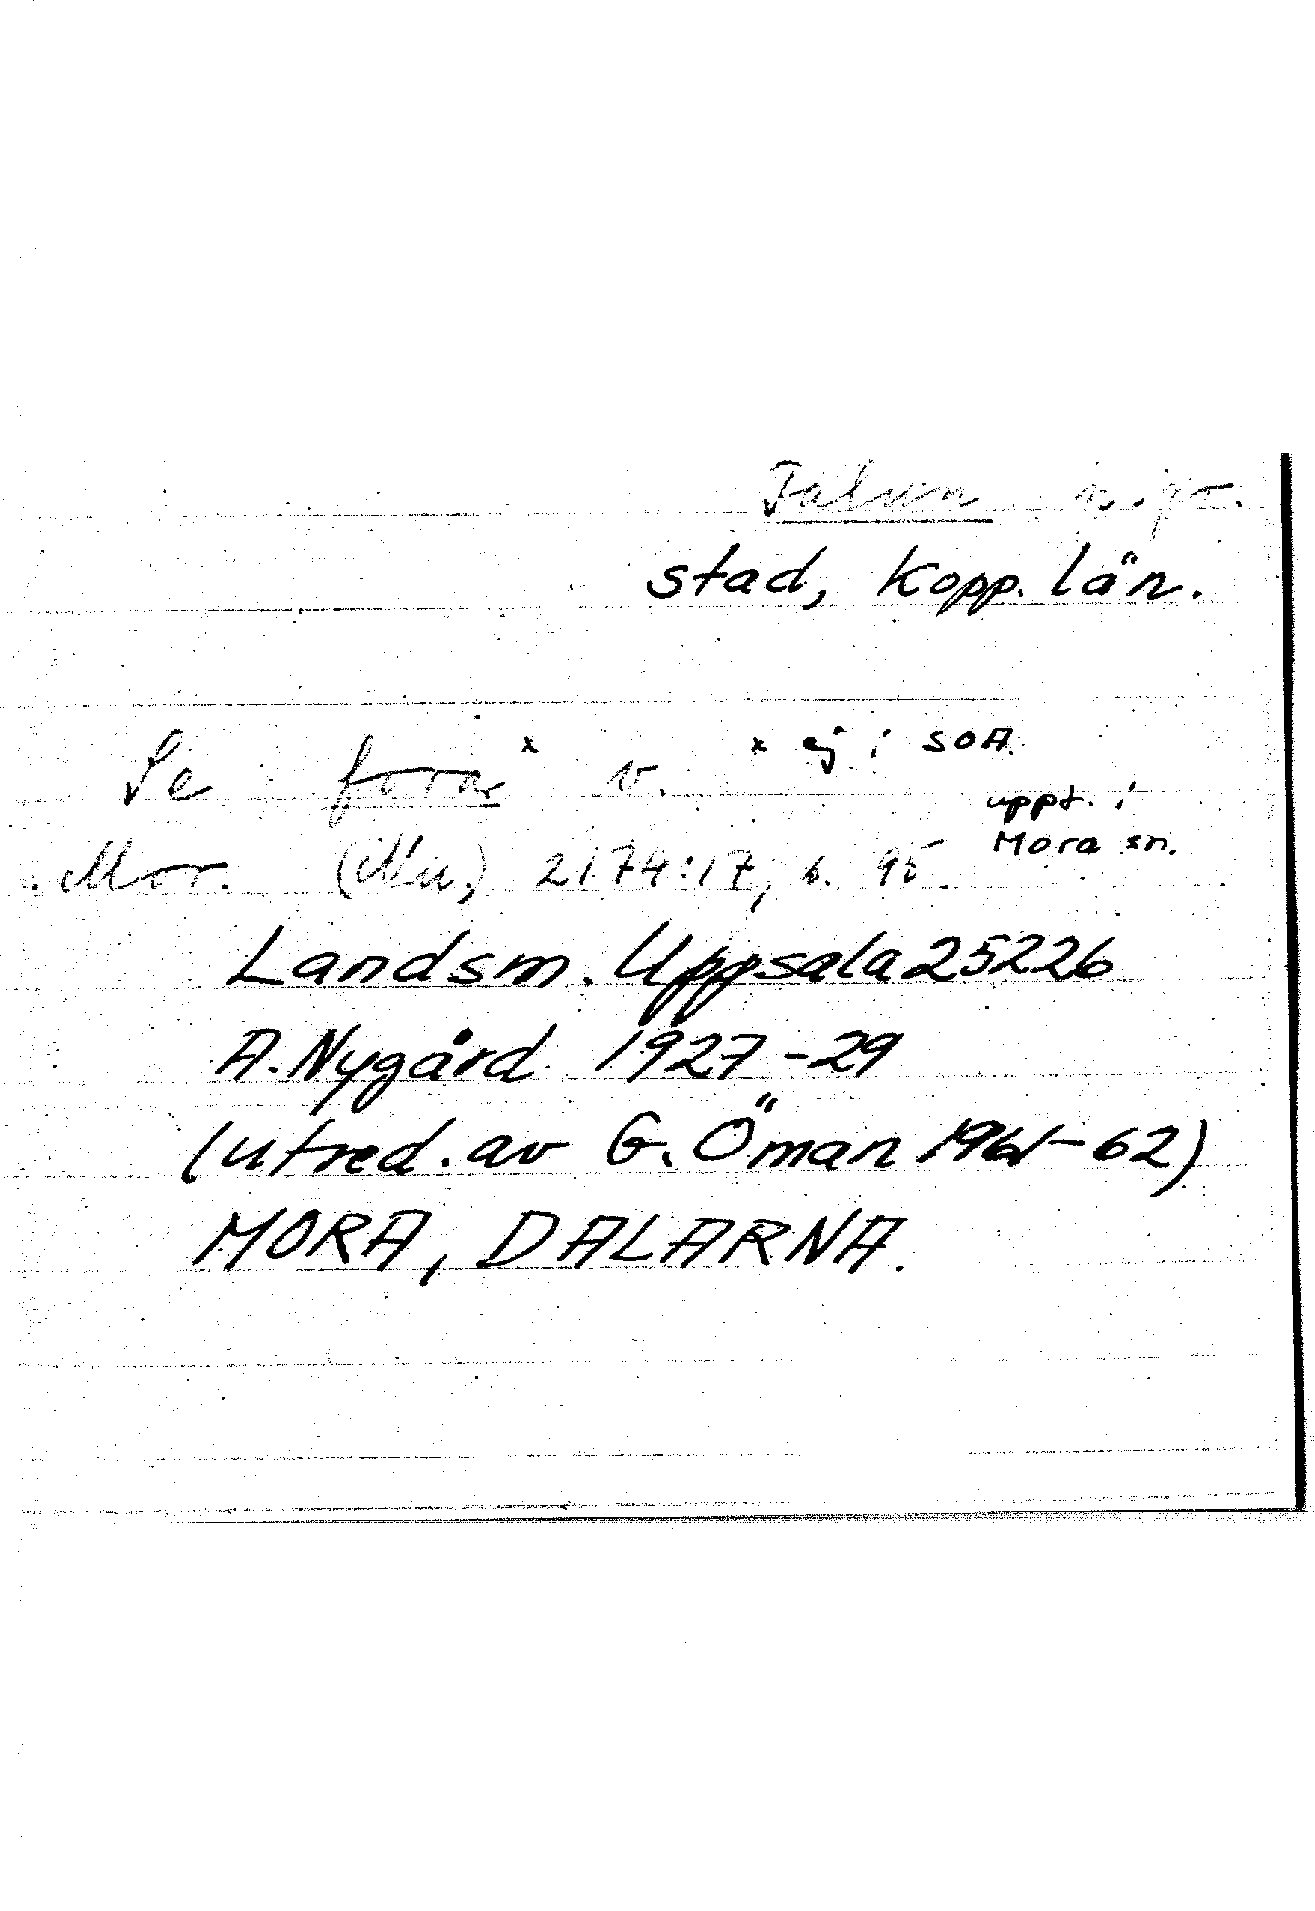 Falun n. pr.
stad, Kopp. län.
Se fora x v. x ej i SOA.
uppt. i
Mora sn.
Mor. (Nu.) 2174:17, s. 95.
Landsm. Uppsala 25226
A. Nygård 1927-29
(utred. av G. Öman 1961-62)
MORA, DALARNA.